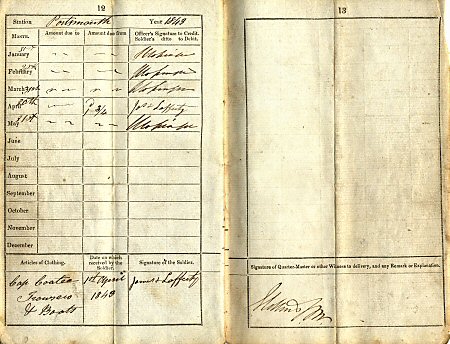 12
Station Portsmouth Year 1843
Month. Amount due to Amount due from Officer's Signature to Credit. Soldier's ditto to Debit.
January 31st
February 28th
March 31st
April 30th 3/4 Jas Lafferty
May 31st
June
July
August
September
October
November
December
Articles of Clothing. Date on which received by the Soldier. Signature of the Soldier.
Cap Coatee 1st April James Lafferty
Trowsers 1843
& Boots
13
Signature of Quarter-Master or other Witness to delivery, and any Remark or Explanation.